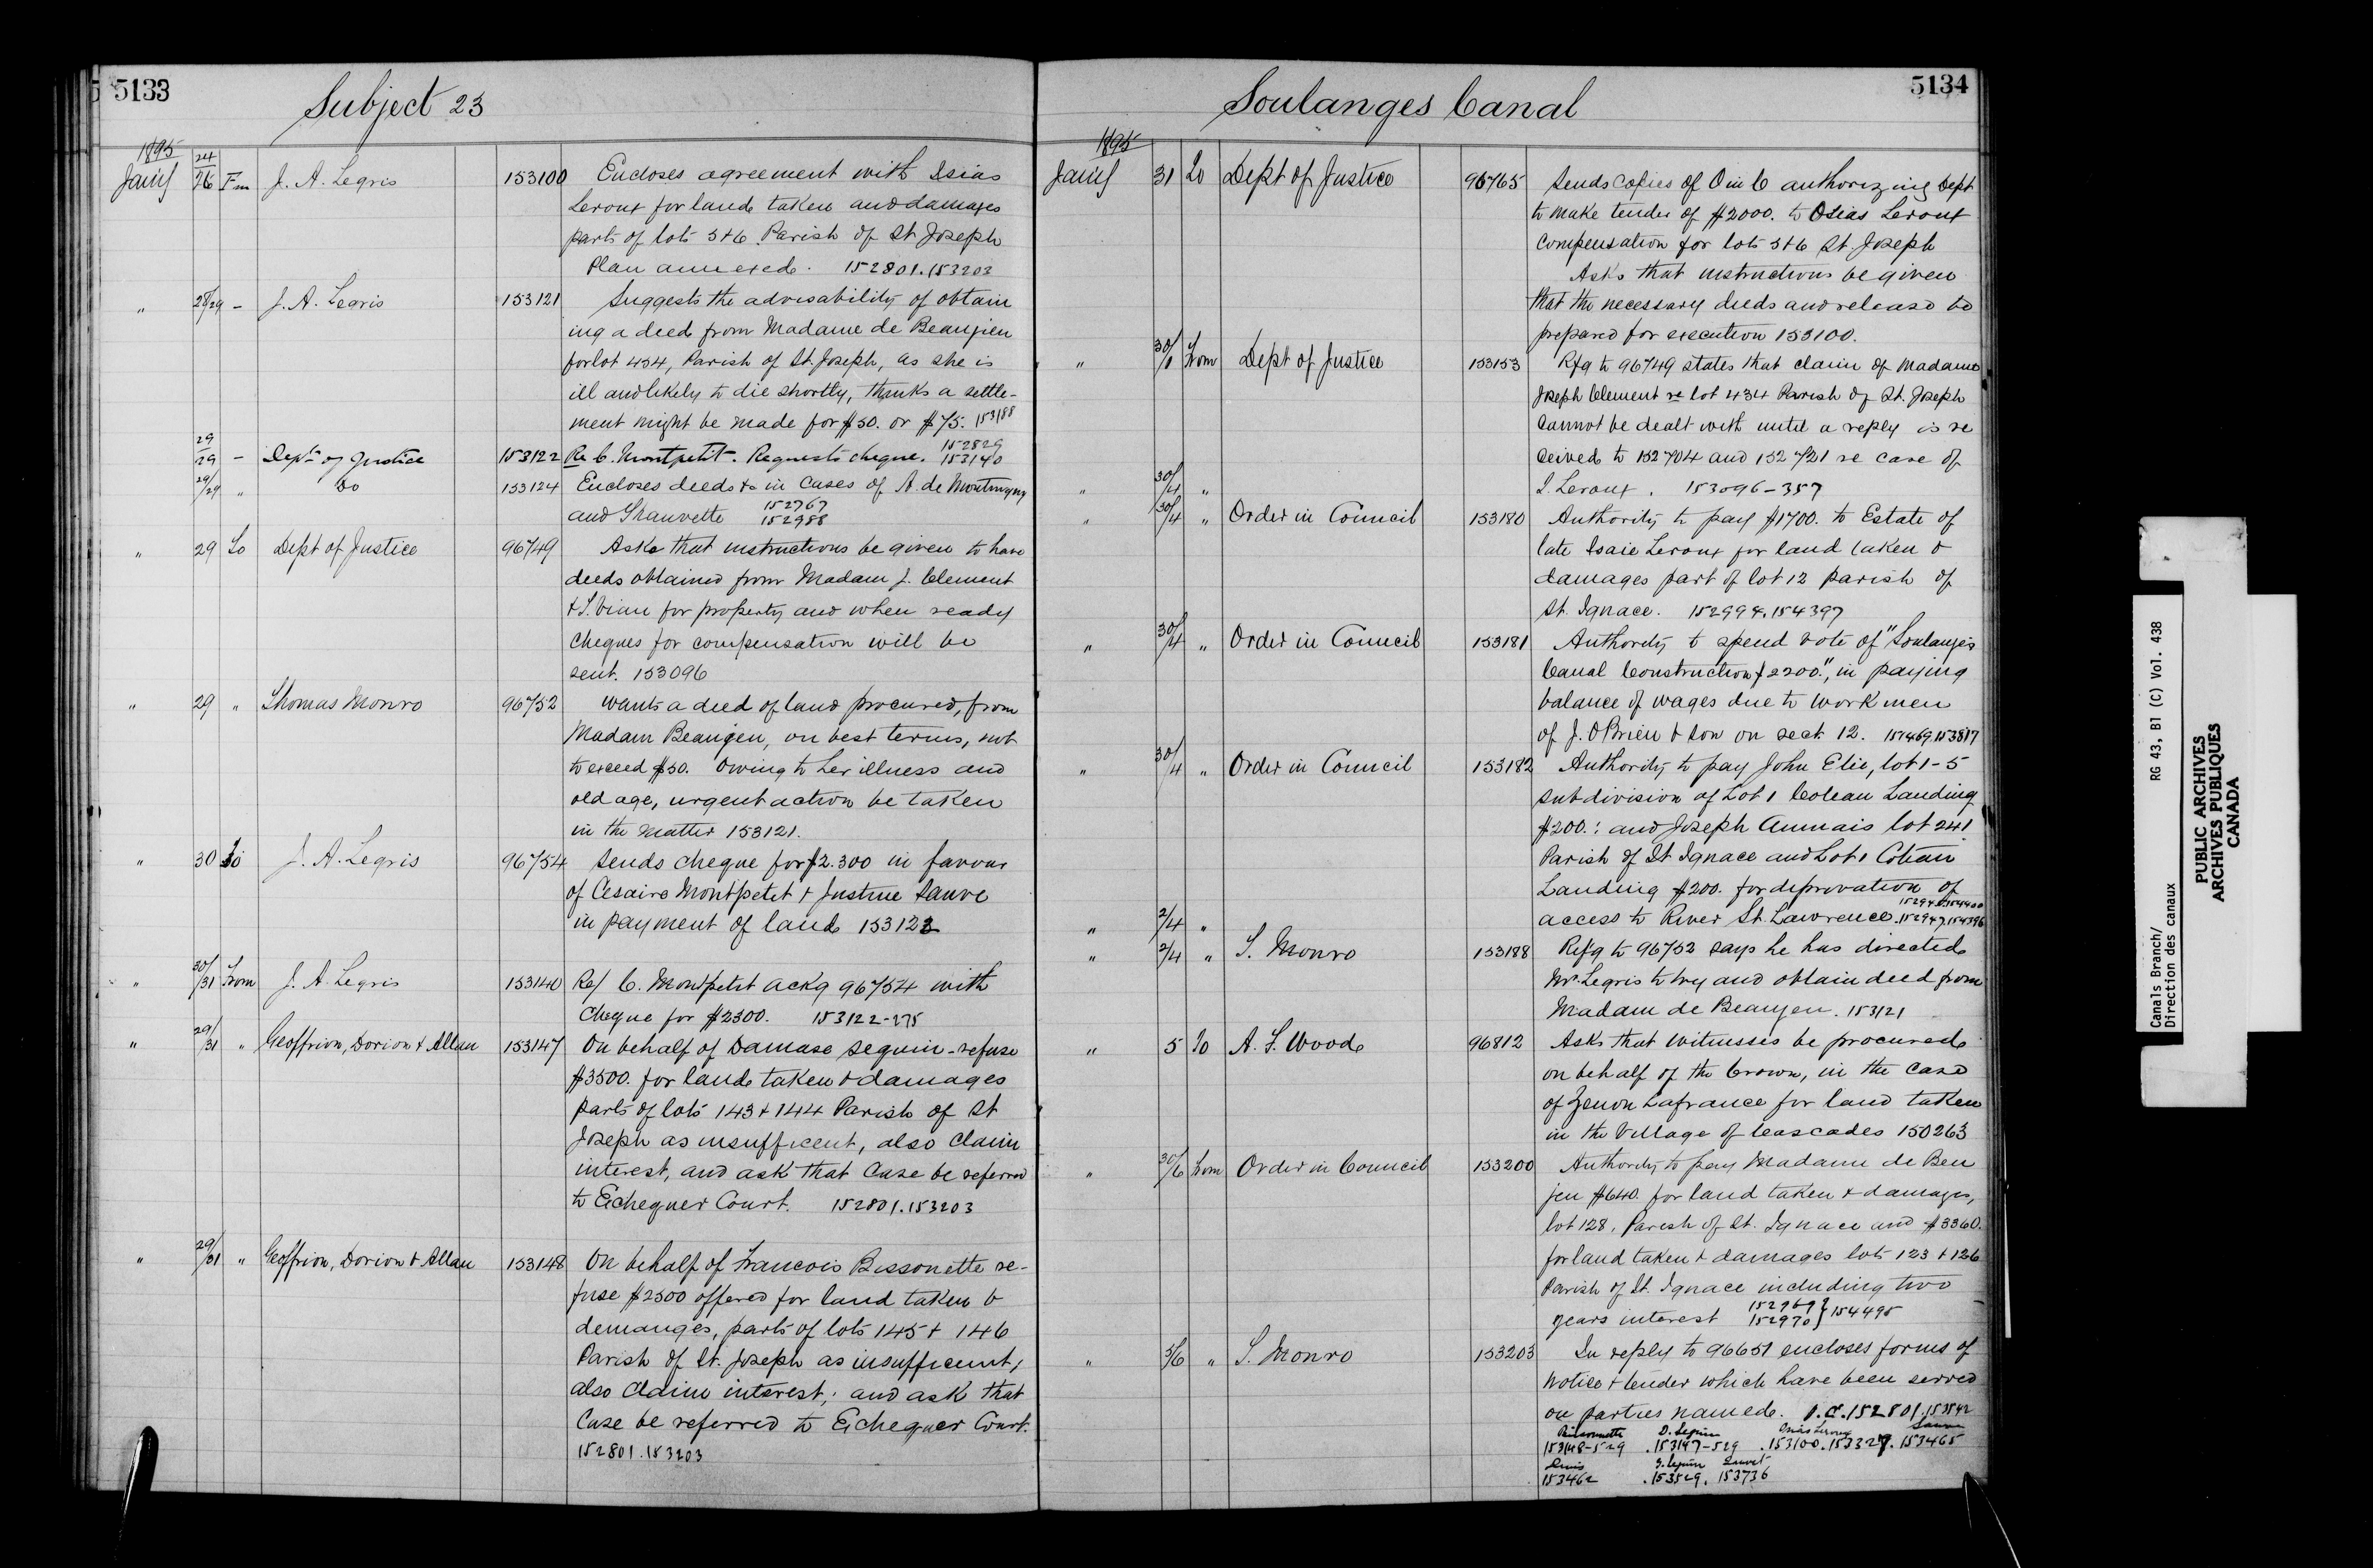 5133
Subject 23
1895
Jany 24/26 Fm J. A. Legris 153100 Encloses agreement with Osias
Leroux for land taken and damages
parts of lots 5 & 6 Parish of St Joseph
Plan annexed. 152801.153203
" 28/29 - J. A. Legris 153121 Suggests the advisability of obtain
ing a deed from Madame de Beaujeu
for lot 434, Parish of St. Joseph, as she is
ill and likely to die shortly, thinks a settle-
ment might be made for $50. or $75. 153188
29/29 - Dept of Justice 153122 Re C. Montpetit. Requests cheque. 152829 153140
29/29 " Do 153124 Encloses deeds &c in cases of A. de Montmigny
and Thauvette 152767 152988
" 29 To Dept of Justice 96749 Asks that instructions be given to have
deeds obtained from Madam J. Clement
& S. Viau for property and when ready
cheques for compensation will be
sent. 153096
" 29 " Thomas Monro 96752 Wants a deed of land procured, from
Madam Beaujeu, on best terms, not
to exceed $50. Owing to her illness and
old age, urgent action be taken
in the matter 153121.
" 30 To J. A. Legris 96754 Sends cheque for $2.300 in favour
of Cesaire Montpetit & Justine Sauve
in payment of land 153122
" 30/31 From J. A. Legris 153140 Re/ C. Montpetit ackg 96754 with
cheque for $2300. 153122-275
" 29/31 " Geoffrion, Dorion & Allan 153147 On behalf of Damase Seguin - refuse
$3500. for land taken & damages
parts of lots 143 & 144 Parish of St
Joseph as insufficent, also claim
interest, and ask that case be referred
to Exchequer Court. 152801.153203
" 29/31 " Geoffrion, Dorion & Allan 153148 On behalf of Francois Bissonette re-
fuse $2500 offered for land taken &
demanges, parts of lots 145 & 146
Parish of St. Joseph as insufficent,
also claim interest; and ask that
Case be referred to Exchequer Court.
152801.153203
5134
Soulanges Canal
1895
Jany 31 To Dept of Justice 96765 Sends copies of O in C authorizing Dept
to make tender of $2000. to Osias Leroux
compensation for lots 5 & 6 St. Joseph
Asks that instructions be given
that the necessary deeds and release be
prepared for execution 153100.
" 30/1 From Dept of Justice 153153 Rfg to 96749 states that claim of Madame
Joseph Clement re lot 434 Parish of St. Joseph
cannot be dealt with until a reply is re
ceived to 152704 and 152721 re case of
" 30/4 " I. Leroux. 153096-357
" 30/4 " Order in Council 153180 Authority to pay $1700. to Estate of
late Isaie Leroux for land taken &
damages part of lot 12 parish of
St. Ignace. 152994.154397
" 30/4 " Order in Council 153181 Authority to spend vote of "Soulanges
Canal Construction $2200.", in paying
balance of wages due to workmen
of J. O'Brien & Son on sect. 12. 153817
" 30/4 " Order in Council 153182 Authority to pay John Elie, lot 1-5
subdivision of Lot 1 Coteau Landing
$200.: and Joseph Aumais lot 241
Parish of St Ignace and Lot 1 Coteau
Landing $200. for deprivation of
" 2/4 " access to River St. Lawrence. 152947.154396
" 2/4 " T. Monro 153188 Refg to 96752 says he has directed
Mr. Legris to try and obtain deed from
Madam de Beaujeu. 153121
" 5 To A. F. Wood 96812 Asks that witnesses be procured
on behalf of the Crown, in the case
of Zenon Lafrance for land taken
in the Village of Cascades 150263
" 30/6 From Order in Council 153200 Authority to pay Madame de Beu
jeu $640. for land taken & damages,
lot 128, Parish of St. Ignace and $3360.
for land taken & damages lots 123 & 126
Parish of St. Ignace including two
years interest 152969 152970 } 154495
" 5/6 " T. Monro 153203 In reply to 96651 encloses forms of
notice & tender which have been served
on parties named. O.C. 152801.153842
Bissonnette D. Seguin Osias Leroux Sauve
153148-529 .153147-529 .153100.153327. 153465
153462 .153529. 153736
Canals Branch/ RG 43, B1 (C) Vol. 438
Direction des canaux
PUBLIC ARCHIVES
ARCHIVES PUBLIQUES
CANADA